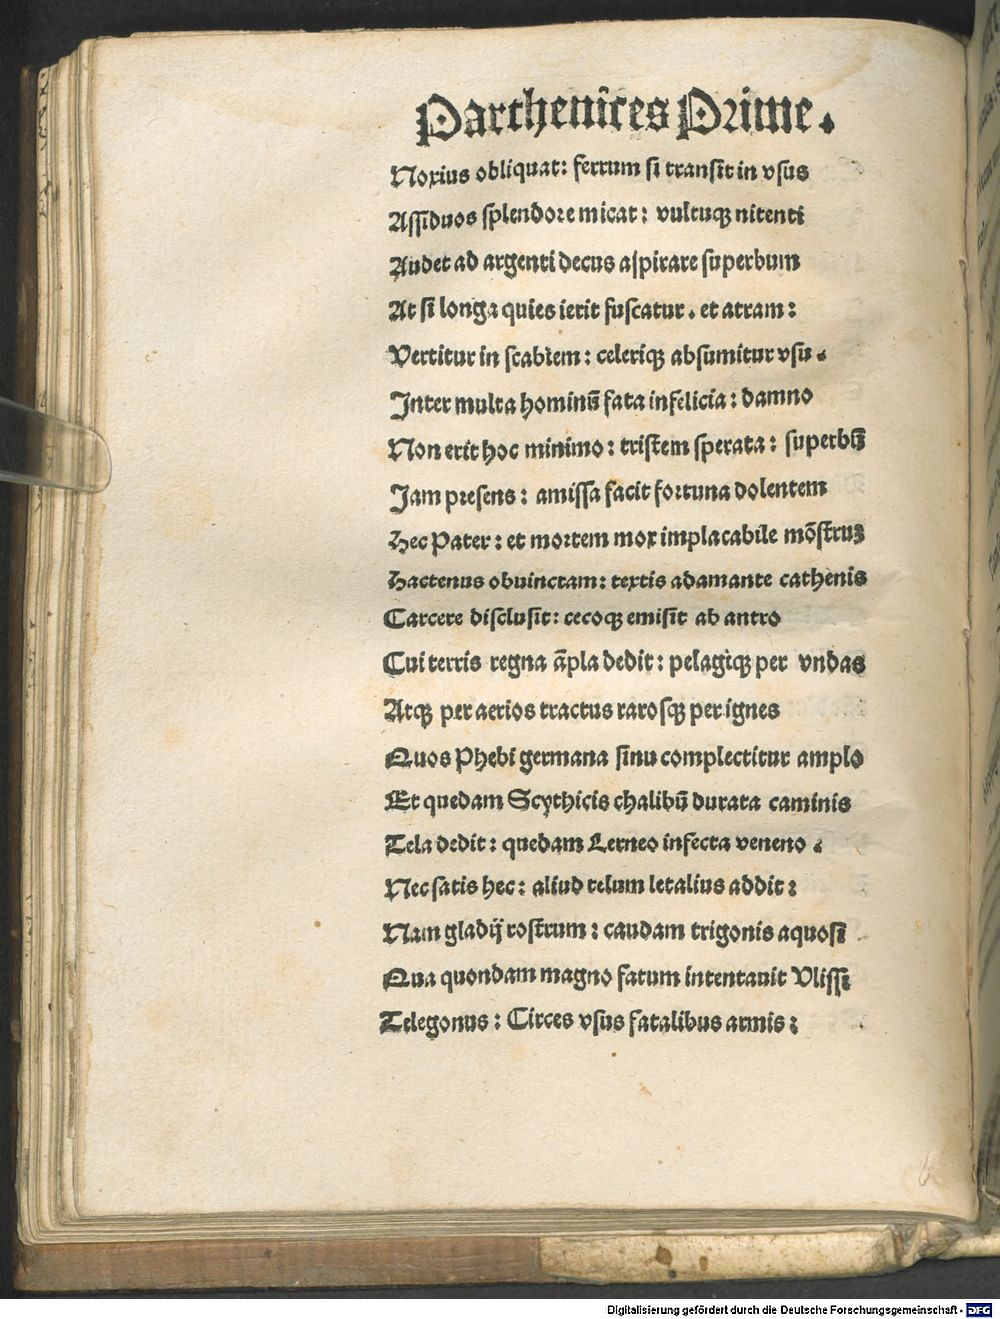 Parthenices Prime.
Noxius obliquat: ferrum si transit in vsus
Assiduos splendore micat: vultuqꝫ nitenti
Audet ad argenti decus aspirare superbum
At si longa quies ierit fuscatur. et atram:
Vertitur in scabiem: celeriqꝫ absumitur vsu.
Inter multa hominū fata infelicia: damno
Non erit hoc minimo: tristem sperata: superbū
Jam presens: amissa facit fortuna dolentem
Hec Pater: et mortem mox implacabile mōstruꝫ
Hactenus obuinctam: textis adamante cathenis
Carcere disclusit: cecoqꝫ emisit ab antro
Cui terris regna āpla dedit: pelagiqꝫ per vndas
Atqꝫ per aerios tractus rarosqꝫ per ignes
Quos Phebi germana sinu complectitur amplo
Et quedam Scythicis chalibū durata caminis
Tela dedit: quedam Lerneo infecta veneno.
Nec satis hec: aliud telum letalius addit:
Nam gladij rostrum: caudam trigonis aquosi
Qua quondam magno fatum intentauit Vlissi
Telegonus: Circes vsus fatalibus armis:
Digitalisierung gefördert durch die Deutsche Forschungsgemeinschaft - DFG